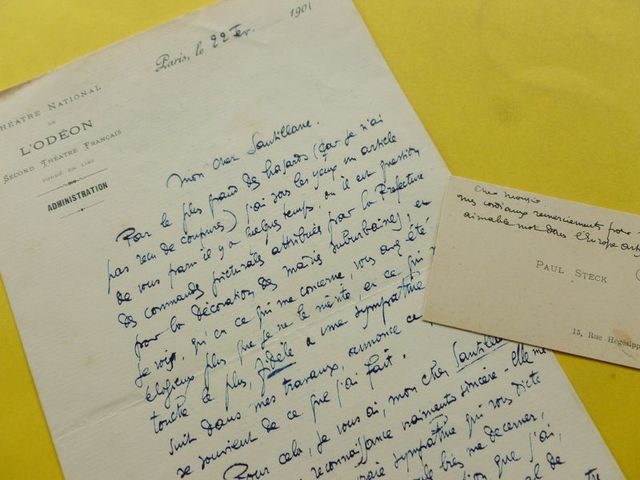 Paris, le 22 Fev. 1901
THÉATRE NATIONAL
DE
L'ODÉON
SECOND THÉATRE FRANÇAIS
FONDÉ EN 1782
ADMINISTRATION
Mon cher Santillane.
Par le plus grand des hasards (car je n'ai
pas reçu de coupures) j'ai sous les yeux un article
de vous paru il y a quelque temps, où il est question
des commandes picturales attribuées par la Préfecture
pour la décoration des mairies suburbaines; et
je vois, qu'en ce qui me concerne, vous avez été
élogieux plus que je ne le mérite, et ce qui
touche le plus, fidèle à une sympathie
suit dans mes travaux, annonce ce
se souvient de ce que j'ai fait.
Pour cela, je vous ai, mon cher Santillane
reconnaissance vraiment sincère. Elle me
sympathie qui vous dicte
bien me décerner,
que j'ai,
de
Cher Monsieur
mes cordiaux remerciements pour
aimable mot dans l'Europe
PAUL STECK
15, Rue Hégésippe